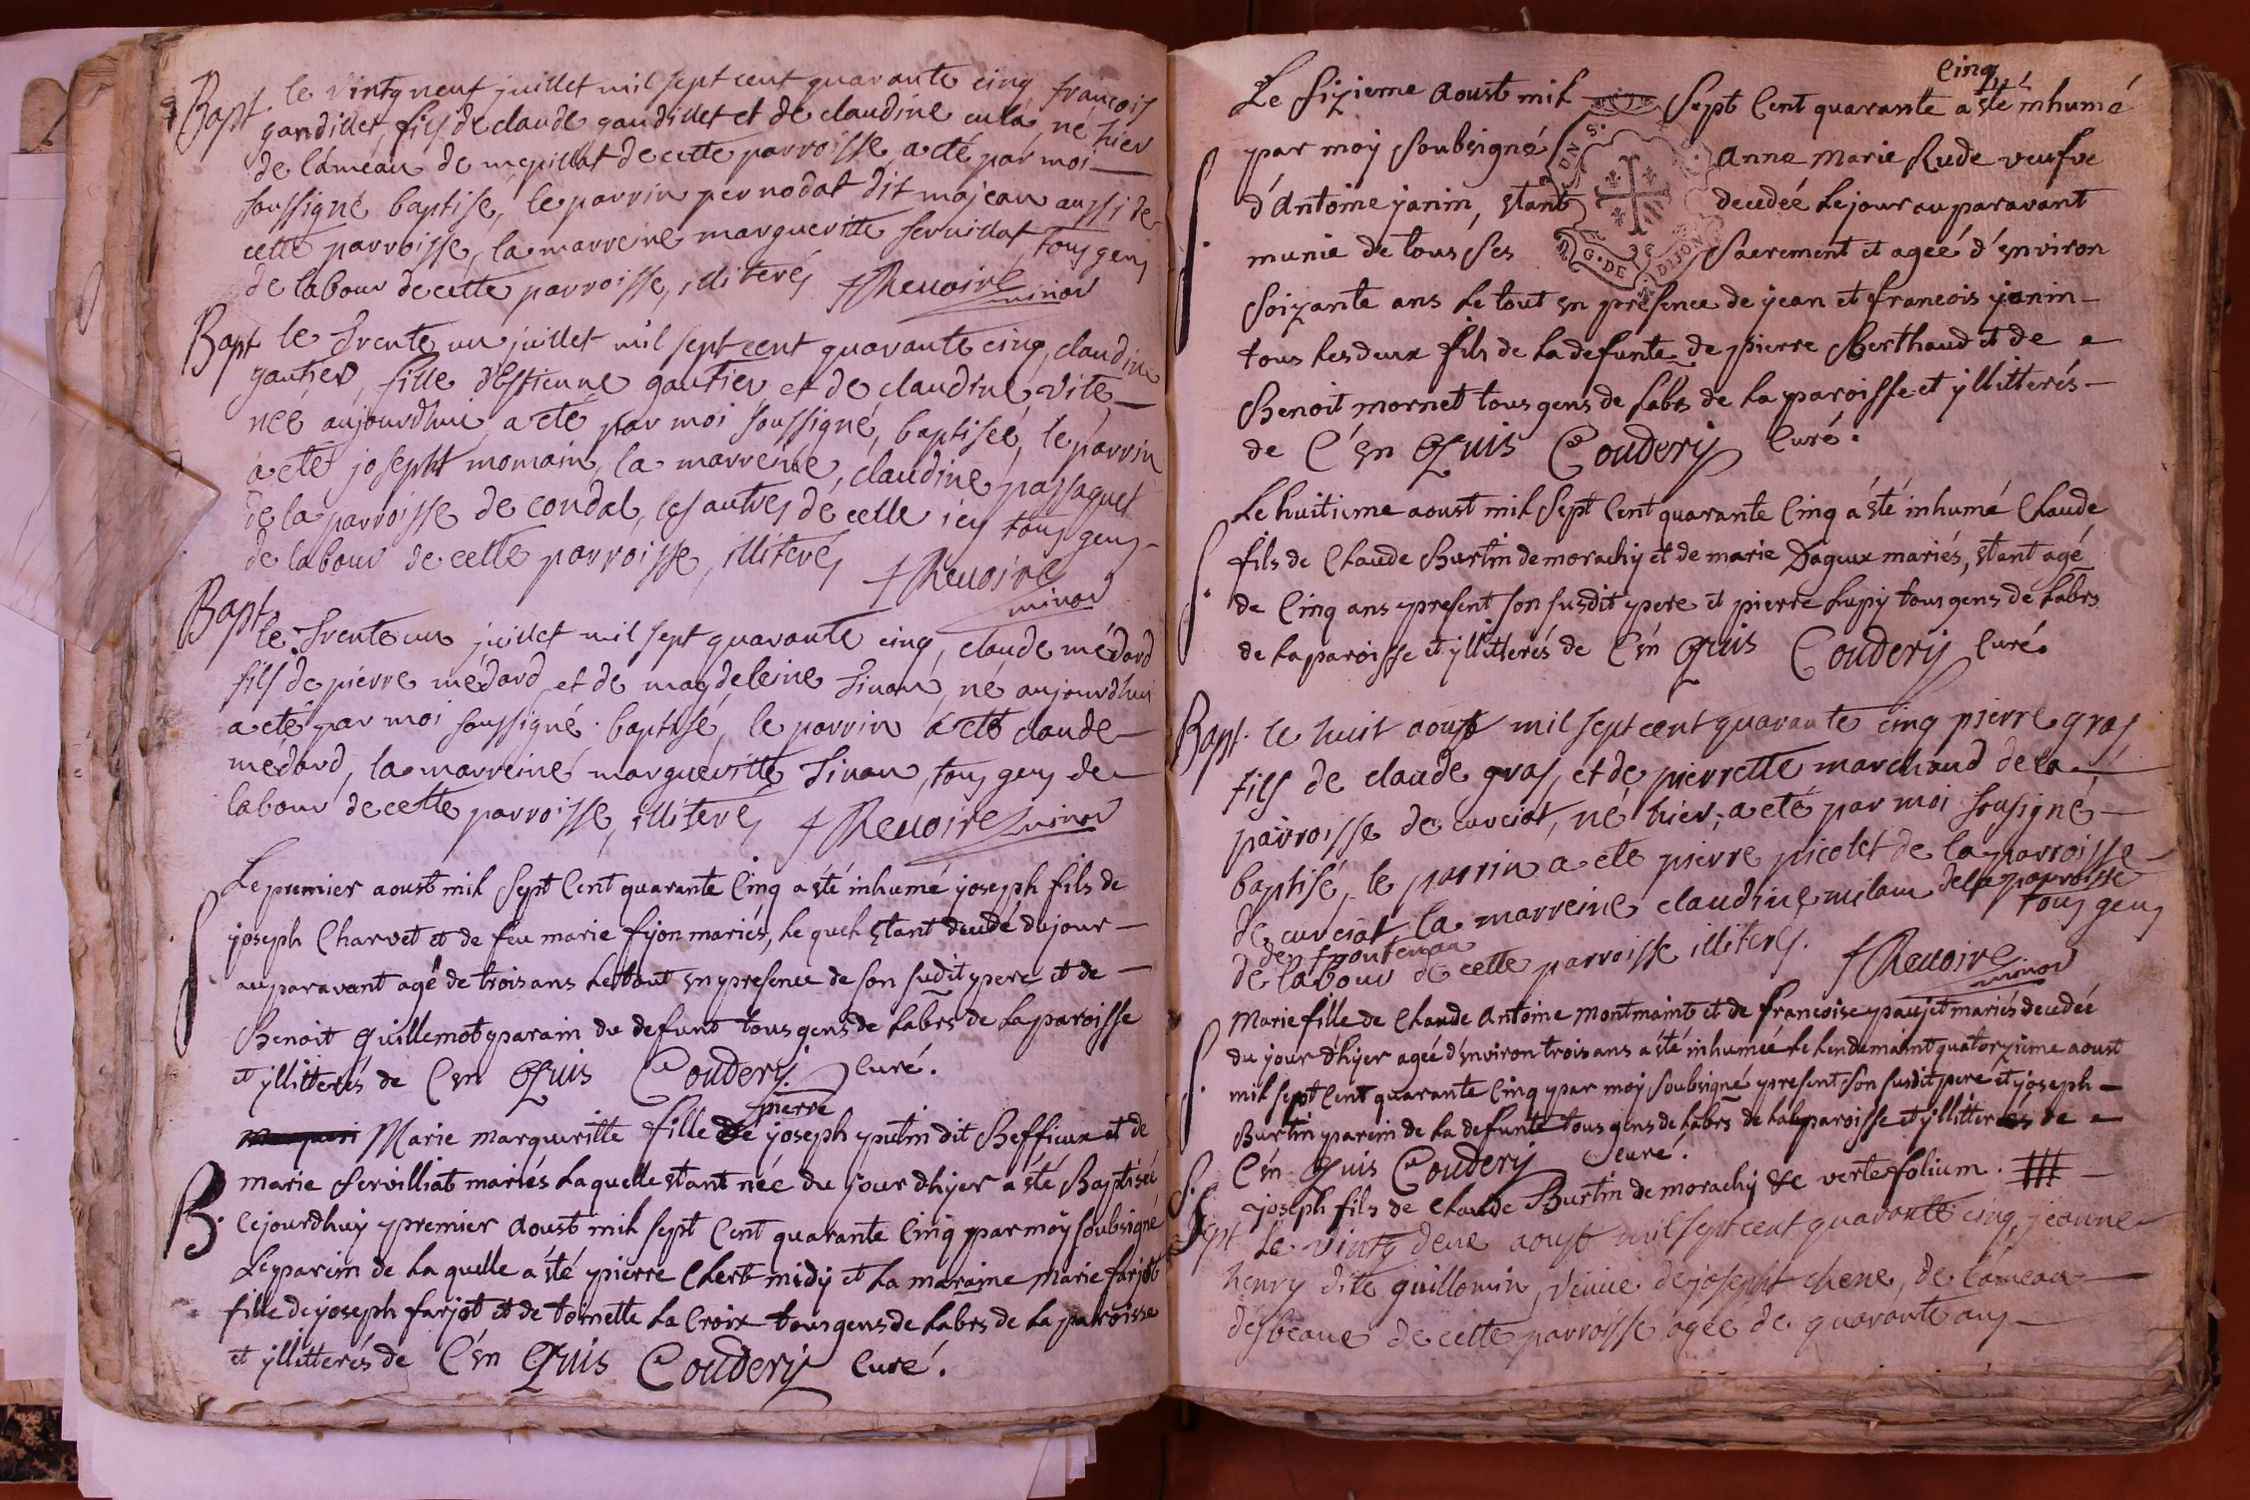 Bapt. le vintgneuf juillet mil sept cent quarante cinq francois
gandillet, fils de claude gandillet et de claudine cula, né hier
de l'ameau de mepillat de cette parroisse, a eté par moi
soussigné baptise, le parrin pernodat dit majean aussi de
cette parroisse, la marreine marguerite servillat tous gens
de labour de cette parroisse, illiterés Revoire
minor
Bapt. le trente un juillet mil sept cent quarante cinq, claudine
gautier, fille d'estienne gautier et de claudine vite,
neé aujourdhui a eté par moi soussigné, baptiseé, le parrin
a eté josepht momain, la marreine, claudine passaquet
de la parroisse de condal, les autres de celle icy tous gens
de labour de cette parroisse, illiterés Revoire
minor
Bapt. le trente un juillet mil sept quarante cinq, claude médard
fils de pierre médard et de magdeleine Tivan, né aujourdhui
a eté par moi soussigné baptisé, le parrin a eté claude
médard, la marreine marguerite Tivan, tous gens de
labour de cette parroisse, illiterés Revoire minor
Le premier aoust mil sept Cent quarante Cinq a été inhumé joseph fils de
joseph Charvet et de feu marie fijon mariés, le quel étant decedé du jour
auparavant agé de trois ans le tout en presence de son sudit pere et de
Benoit Guillemot parain du defunt tous gens de labrs de la paroisse
et yllitterés de C'en Quis Coudery Curé.
pierre
Marie marguerite fille de joseph putin dit Beffieux et de
marie Servilliat mariés laquelle étant née du jour d'hyer a été Baptisée
B. Cejourdhuy premier aoust mil sept Cent quarante Cinq par moy soubsigné
Le parein de la quelle a été pierre Chert midy et la maraine marie farjot
fille de joseph farjot et de toinette la Croix tous gens de labrs de la paroisse
et yllitterés de C'en Quis Coudery Curé.
Cinq
Le sixieme aoust mil sept Cent quarante a été inhumé
par moy soubsigné anne marie Rude veufve
d'antoine janin, étant decedeé le jour auparavant
munie de tous ses sacrement et ageé d'environ
G. DE DIJON
soixante ans le tout en presence de jean et francois janin
tous les deux fils de la defunte de pierre Berthaud et de
Benoit mornet tous gens de labrs de la paroisse et yllitterés
de C'en Quis Coudery Curé.
Le huitieme aoust mil sept Cent quarante Cinq a été inhumé Claude
fils de Claude Burtin de morachy et de marie Dageux mariés, étant agé
de Cinq ans present son susdit pere et pierre Lupy tous gens de labrs
de la paroisse et yllitterés de C'en Quis Coudery Curé.
Bapt. le huit aoust mil sept cent quarante cinq pierre gras
fils de claude gras, et de pierrette marchand de la
parroisse de curciat, né hier, a eté par moi sousigné
baptisé, le parrin a ete pierre picolet de la parroisse
de curciat la marreine claudine milan de la parroisse
de frontenau tous gens
de labour de cette parroisse illiterés. Revoire
minor
Marie fille de Claude antoine montmaint et de francoise paujet mariés decedée
du jour d'hyer ageé d'environ trois ans a été inhumée le lendemaint quatorzieme aoust
mil sept Cent quarante Cinq par moy soubsigné present son susdit pere et joseph
Burtin parein de la defunte tous gens de labrs de la paroisse et yllitterés de
C'en Quis Coudery Curé.
joseph fils de Claude Burtin de morachy &c verte folium.
Le vingt deux aoust mil sept cent quarante cinq, jeanne
henry dite guillomin, veuve de josepht chene, de l'ameau
desbeaux de cette parroisse ageé de quarante ans